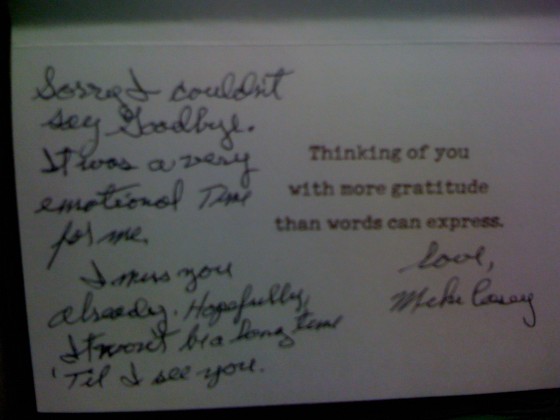 Sorry I couldn't
say Goodbye.
It was a very
emotional Time
for me.
I miss you
already. Hopefully,
It won't be a long time
'Til I see you.
Thinking of you
with more gratitude
than words can express.
Love,
Mike Casey